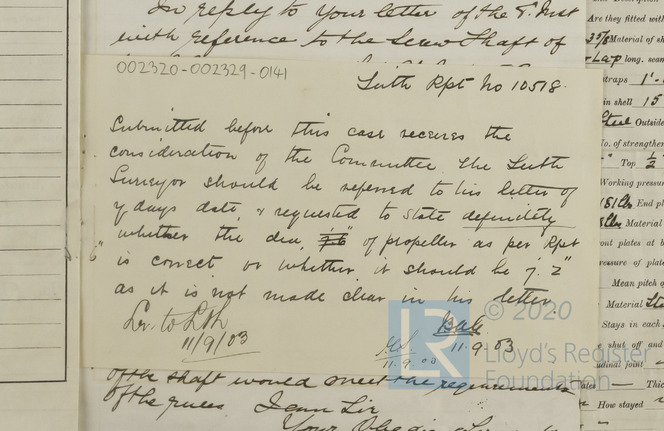 In reply to your letter of the 8. Inst
with reference to the Screw Shaft of
002320-002329-0141
Leith Rpt No 10518.
Submitted before this case receives the
consideration of the Committee the Leith
Surveyor should be referred to his letter of
days date, & requested to state definitely
whether the dia, of propeller as per Rpt
is correct or whether it should be
as it is not made clear in his letter.
11/9/03
11.9.03
© 2020
LR
Lloyd's Register
Foundation
of the shaft would meet the requirements
of the rules I am Sir
Your
Are they fitted with
Material of sh
Lap long. seam
traps 1'-
in shell 15
Steel Outside
No. of strengthen
Top 1/2
Working pressur
End pl
Material
ront plates at b
ressure of plate
Mean pitch o
Material Ste
Stays in each
s shut off and
udinal joint
This
How stayed